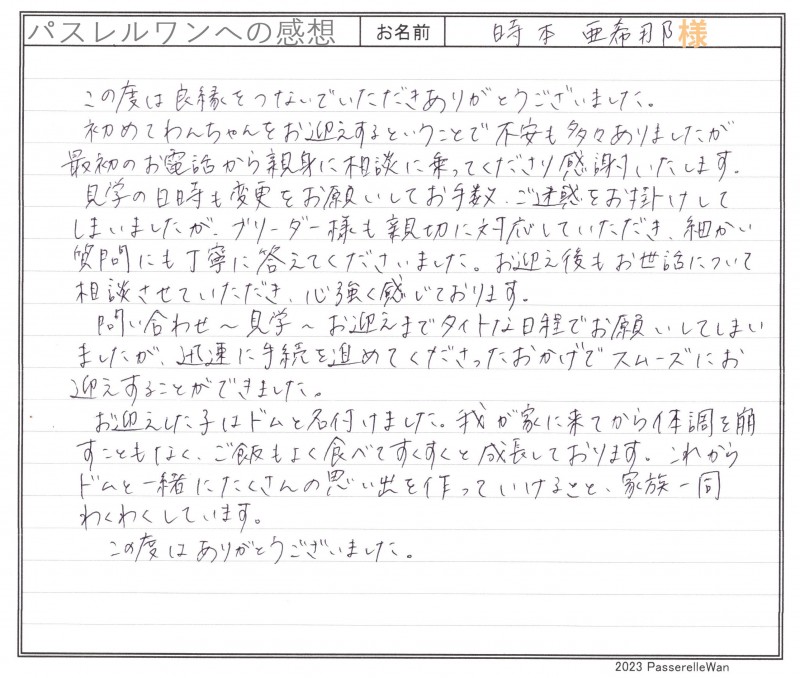 パスレルワンへの感想 お名前 時本 亜希那 様
この度は良縁をつないでいただきありがとうございました。
初めてわんちゃんをお迎えするということで不安も多々ありましたが
最初のお電話から親身に相談に乗ってくださり感謝いたします。
見学の日時も変更をお願いしてお手数、ご迷惑をお掛けして
しまいましたが、ブリーダー様も親切に対応していただき、細かい
質問にも丁寧に答えてくださいました。お迎え後もお世話について
相談させていただき、心強く感じております。
問い合わせ～見学～お迎えまでタイトな日程でお願いしてしまい
ましたが、迅速に手続を進めてくださったおかげでスムーズにお
迎えすることができました。
お迎えした子はドムと名付けました。我が家に来てから体調を崩
すこともなく、ご飯もよく食べてすくすくと成長しております。これから
ドムと一緒にたくさんの思い出を作っていけること、家族一同
わくわくしています。
この度はありがとうございました。
2023 PasserelleWan